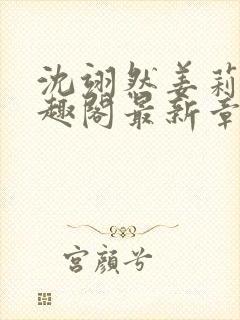 沈翊然姜莉
趣阁最新章
宫颜兮